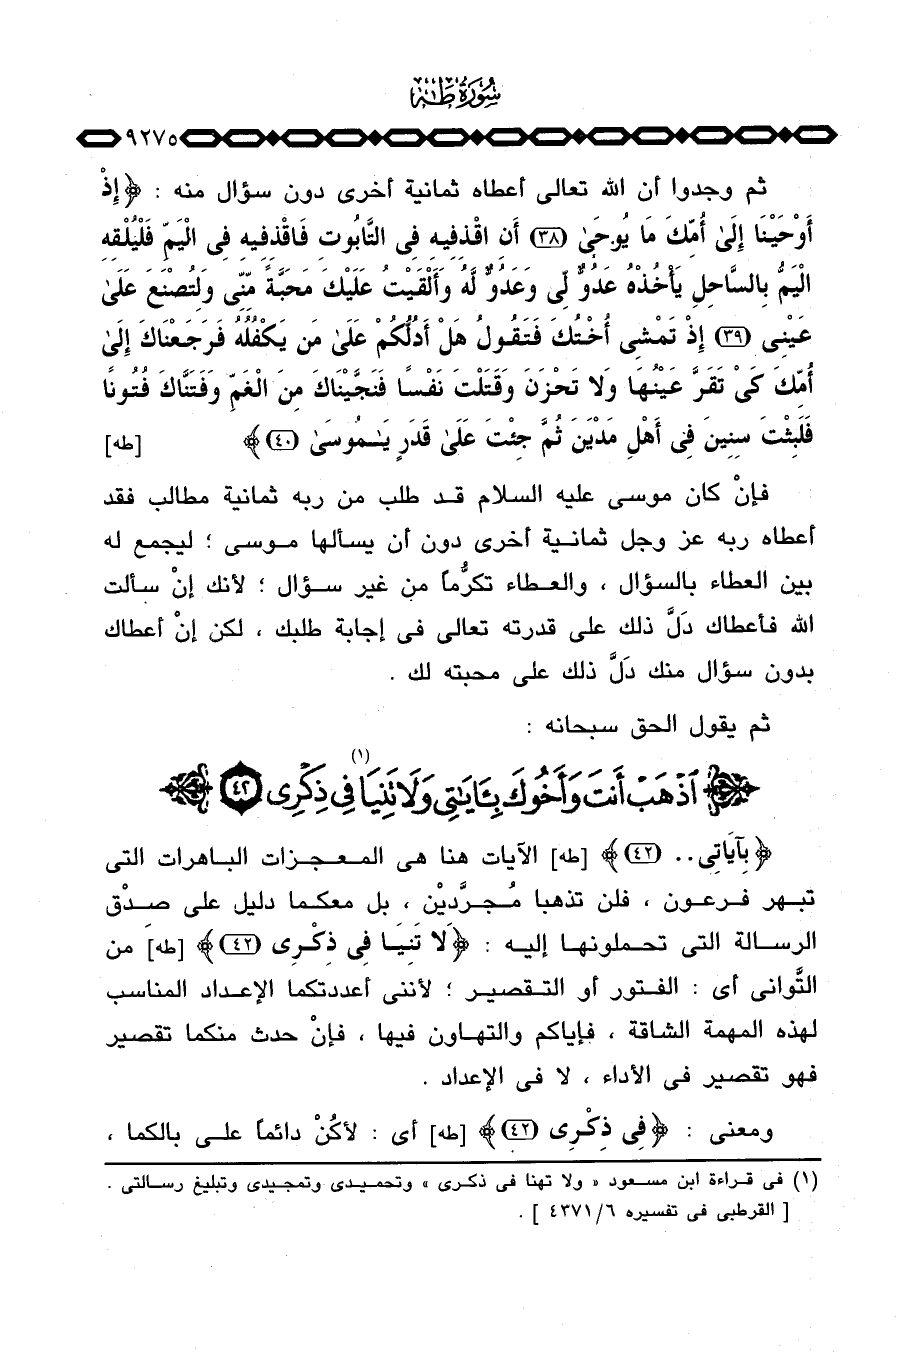 سُورَةُ طٰهٰ
٩٢٧٥
ثم وجدوا أن الله تعالى أعطاه ثمانية أخرى دون سؤال منه : ﴿إِذْ
أَوْحَيْنَا إِلَىٰ أُمِّكَ مَا يُوحَىٰ (٣٨) أَنِ اقْذِفِيهِ فِى التَّابُوتِ فَاقْذِفِيهِ فِى الْيَمِّ فَلْيُلْقِهِ
الْيَمُّ بِالسَّاحِلِ يَأْخُذْهُ عَدُوٌّ لِّى وَعَدُوٌّ لَّهُ وَأَلْقَيْتُ عَلَيْكَ مَحَبَّةً مِّنِّى وَلِتُصْنَعَ عَلَىٰ
عَيْنِى (٣٩) إِذْ تَمْشِى أُخْتُكَ فَتَقُولُ هَلْ أَدُلُّكُمْ عَلَىٰ مَن يَكْفُلُهُ فَرَجَعْنَاكَ إِلَىٰ
أُمِّكَ كَىْ تَقَرَّ عَيْنُهَا وَلَا تَحْزَنَ وَقَتَلْتَ نَفْسًا فَنَجَّيْنَاكَ مِنَ الْغَمِّ وَفَتَنَّاكَ فُتُونًا
فَلَبِثْتَ سِنِينَ فِى أَهْلِ مَدْيَنَ ثُمَّ جِئْتَ عَلَىٰ قَدَرٍ يَـٰمُوسَىٰ (٤٠)﴾ [طه]
فإنْ كان موسى عليه السلام قد طلب من ربه ثمانية مطالب فقد
أعطاه ربه عز وجل ثمانية أخرى دون أن يسألها موسى ؛ ليجمع له
بين العطاء بالسؤال ، والعطاء تكرُّماً من غير سؤال ؛ لأنك إنْ سألت
الله فأعطاك دَلَّ ذلك على قدرته تعالى فى إجابة طلبك ، لكن إنْ أعطاك
بدون سؤال منك دَلَّ ذلك على محبته لك .
ثم يقول الحق سبحانه :
ٱذْهَبْ أَنتَ وَأَخُوكَ بِـَٔايَـٰتِى وَلَا تَنِيَا (١) فِى ذِكْرِى ٤٢
﴿بِآيَاتِى.. (٤٢)﴾ [طه] الآيات هنا هى المعجزات الباهرات التى
تبهر فرعون ، فلن تذهبا مُجرَّديْن ، بل معكما دليل على صدْق
الرسالة التى تحملونها إليه : ﴿لَا تَنِيَا فِى ذِكْرِى (٤٢)﴾ [طه] من
التَّوانى أى : الفتور أو التقصير ؛ لأننى أعددتكما الإعداد المناسب
لهذه المهمة الشاقة ، فإياكم والتهاون فيها ، فإنْ حدث منكما تقصير
فهو تقصير فى الأداء ، لا فى الإعداد .
ومعنى : ﴿فِى ذِكْرِى (٤٢)﴾ [طه] أى : لأكُنْ دائماً على بالكما ،
(١) فى قراءة ابن مسعود « ولا تهنا فى ذكرى » وتحميدى وتمجيدى وتبليغ رسالتى .
[ القرطبى فى تفسيره ٤٣٧١/٦ ] .